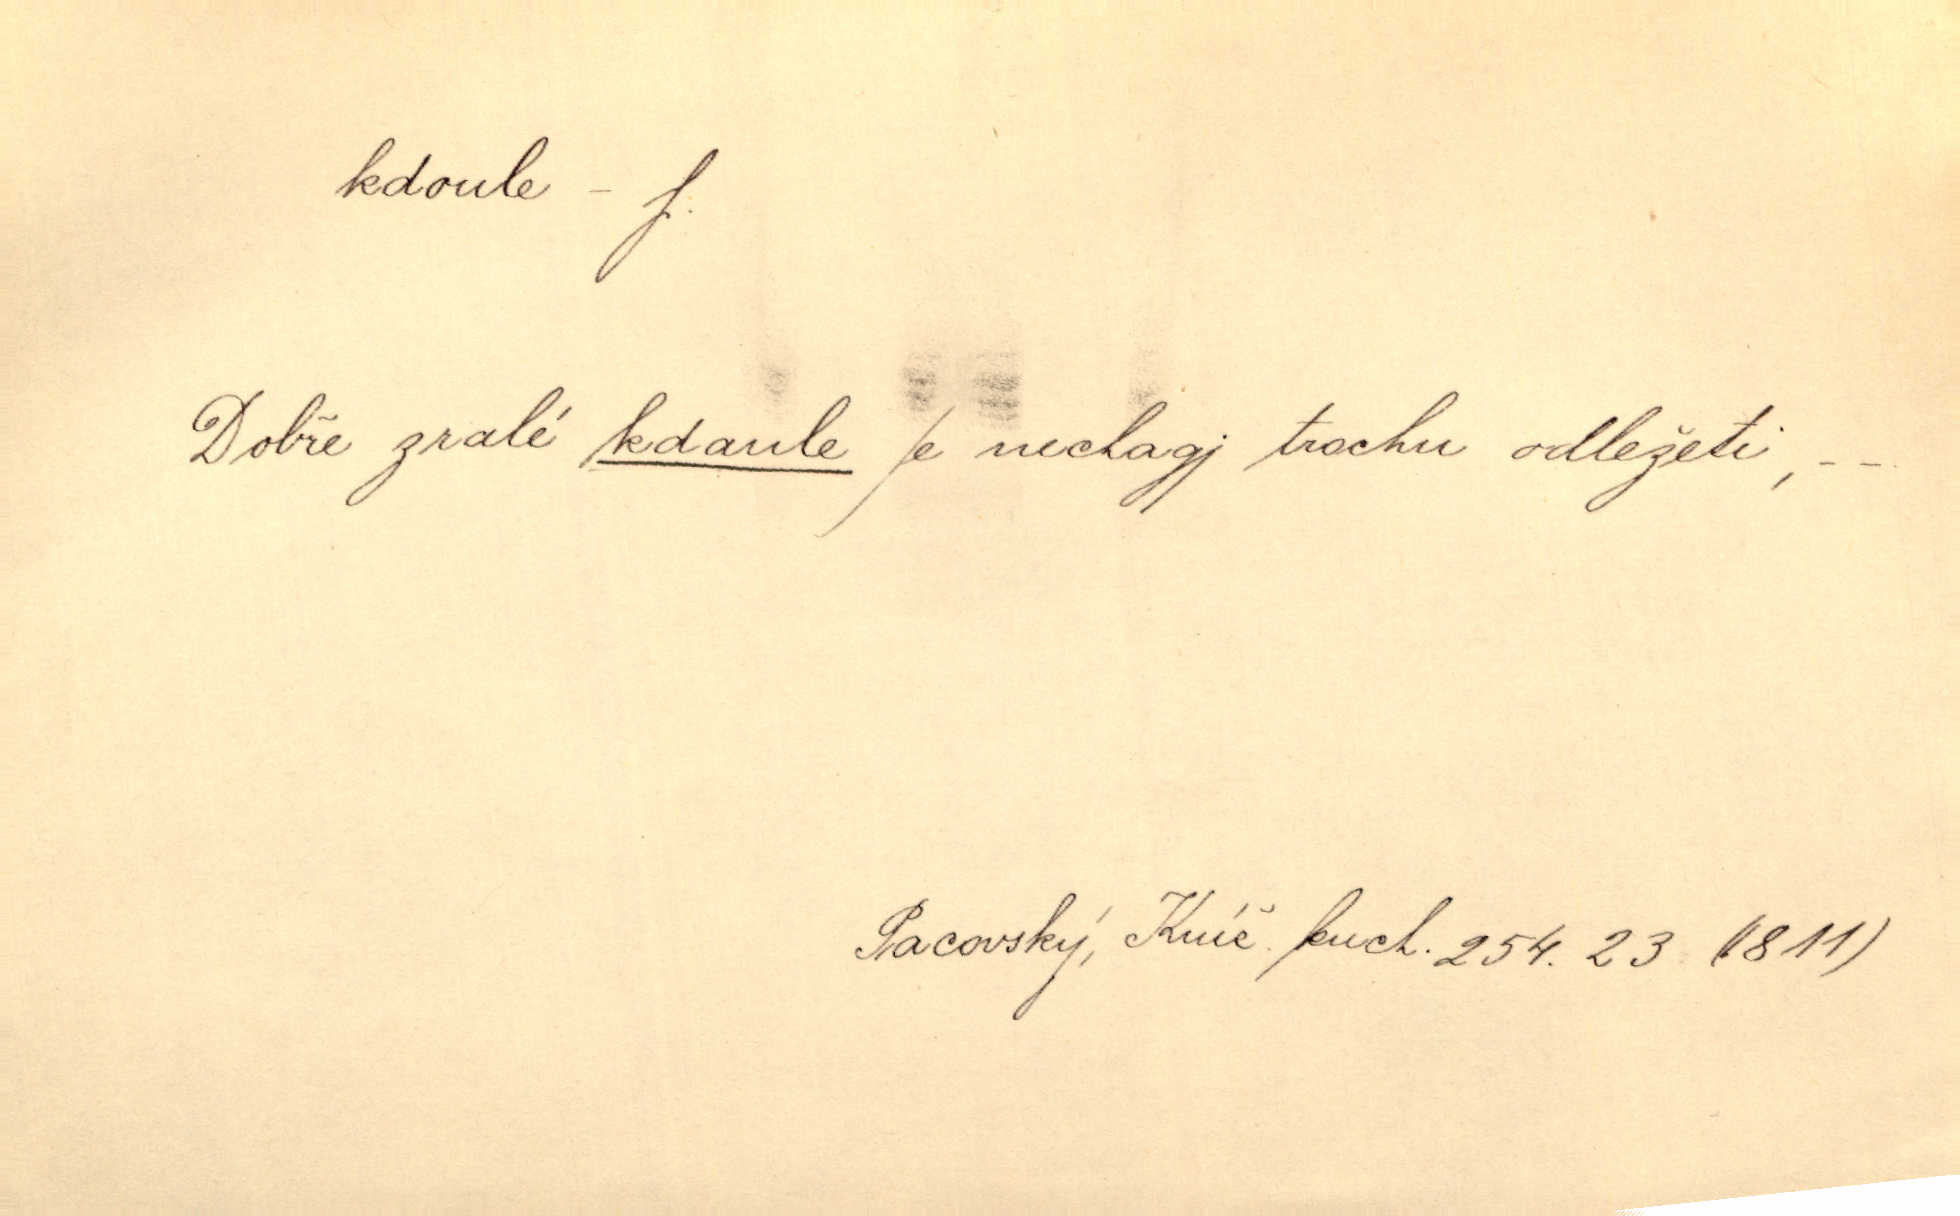 kdoule - f.
Dobře zralé kdaule se nechagj trochu odležeti, --
Pacovský, Kníž. kuch. 254. 23 (1811)